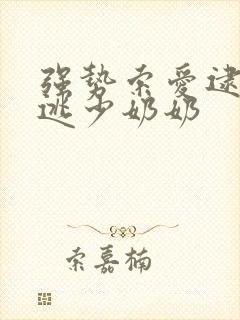 强势索爱逮
逃少奶奶
索嘉楠